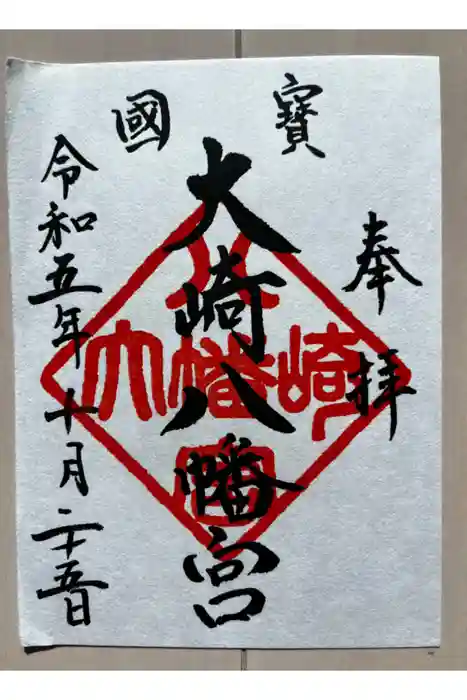 奉拝
寶國
大崎八幡宮
大崎八幡宮
令和五年十月二十五日